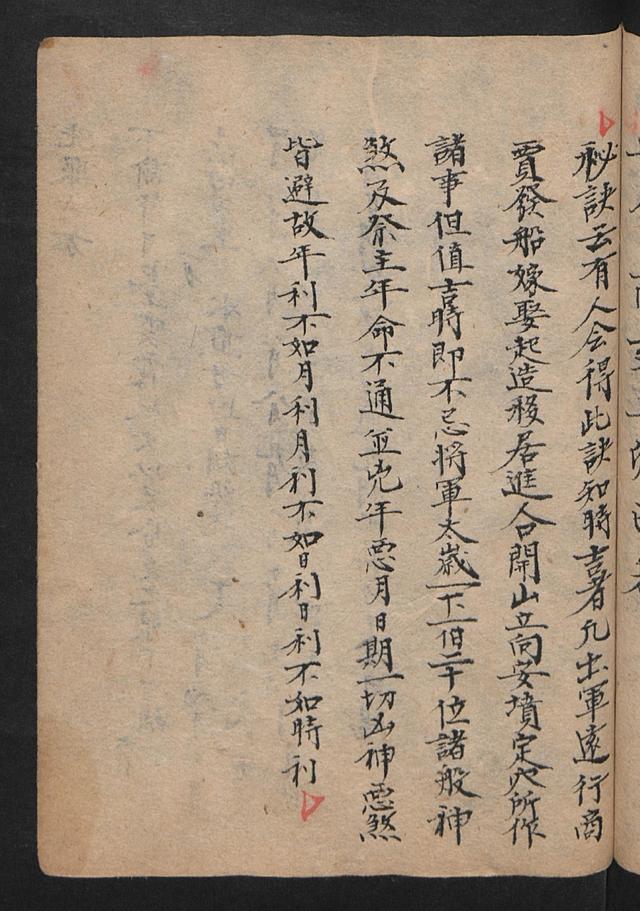 秘訣云有人会得此訣知時吉者凡出軍遠行商
賈發船嫁娶起造移居進人口開山立向安墳定穴所作
諸事但值吉時即不忌將軍太歲一千二佰二十位諸般神
煞及祭主年命不通並兇年惡月日期一切凶神惡煞
皆避故年利不如月利月利不如日利日利不如時利